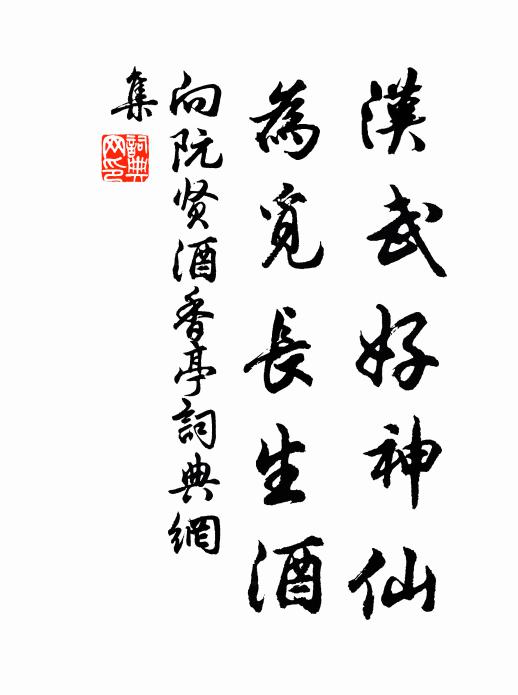 漢武好神仙
為覓長生酒
向阮贤酒香亭詞典網
集
詞典
网印